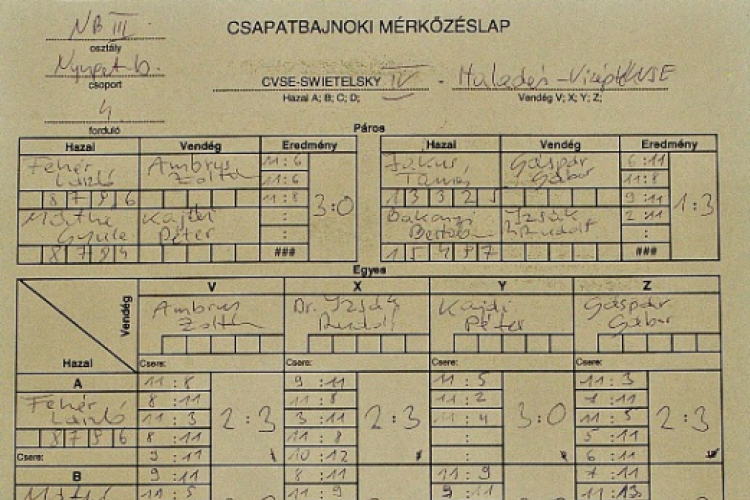 NB III. CSAPATBAJNOKI MÉRKŐZÉSLAP
osztály
Nyugat b. CVSE-SWIETELSKY IV - Haladás-Vízép KSE
csoport Hazai A; B; C; D; Vendég V; X; Y; Z;
4
forduló Páros
Hazai Vendég Eredmény Hazai Vendég Eredmény
Fehér Ambrus 11:6 Jakus, Gáspár 6:11
László Zoltán 11:6 Tamás Gábor 11:8
8 7 9 6 11:8 3:0 1 3 3 2 5 9:11 1:3
Máthé Kajdi : Bakonyi Izsák 2:11
Gyula Péter : Bertalan Dr. Rudolf :
8 7 8 4 ### 1 5 4 9 7 ###
Egyes
V X Y Z
Vendég Ambrus Dr. Izsák Kajdi Gáspár
Zoltán Rudolf Péter Gábor
Hazai Csere: Csere: Csere: Csere:
A 11:8 9:11 11:5 11:3
Fehér 8:11 11:8 11:2 7:11
László 11:3 2:3 3:11 2:3 11:4 3:0 11:5 2:3
8 7 9 6 8:11 11:8 : 5:11
Csere: 9:11 10:12 : 6:11
B 9:11 8:11 11:9 7:11
11:5 11:9 9:11 11:13